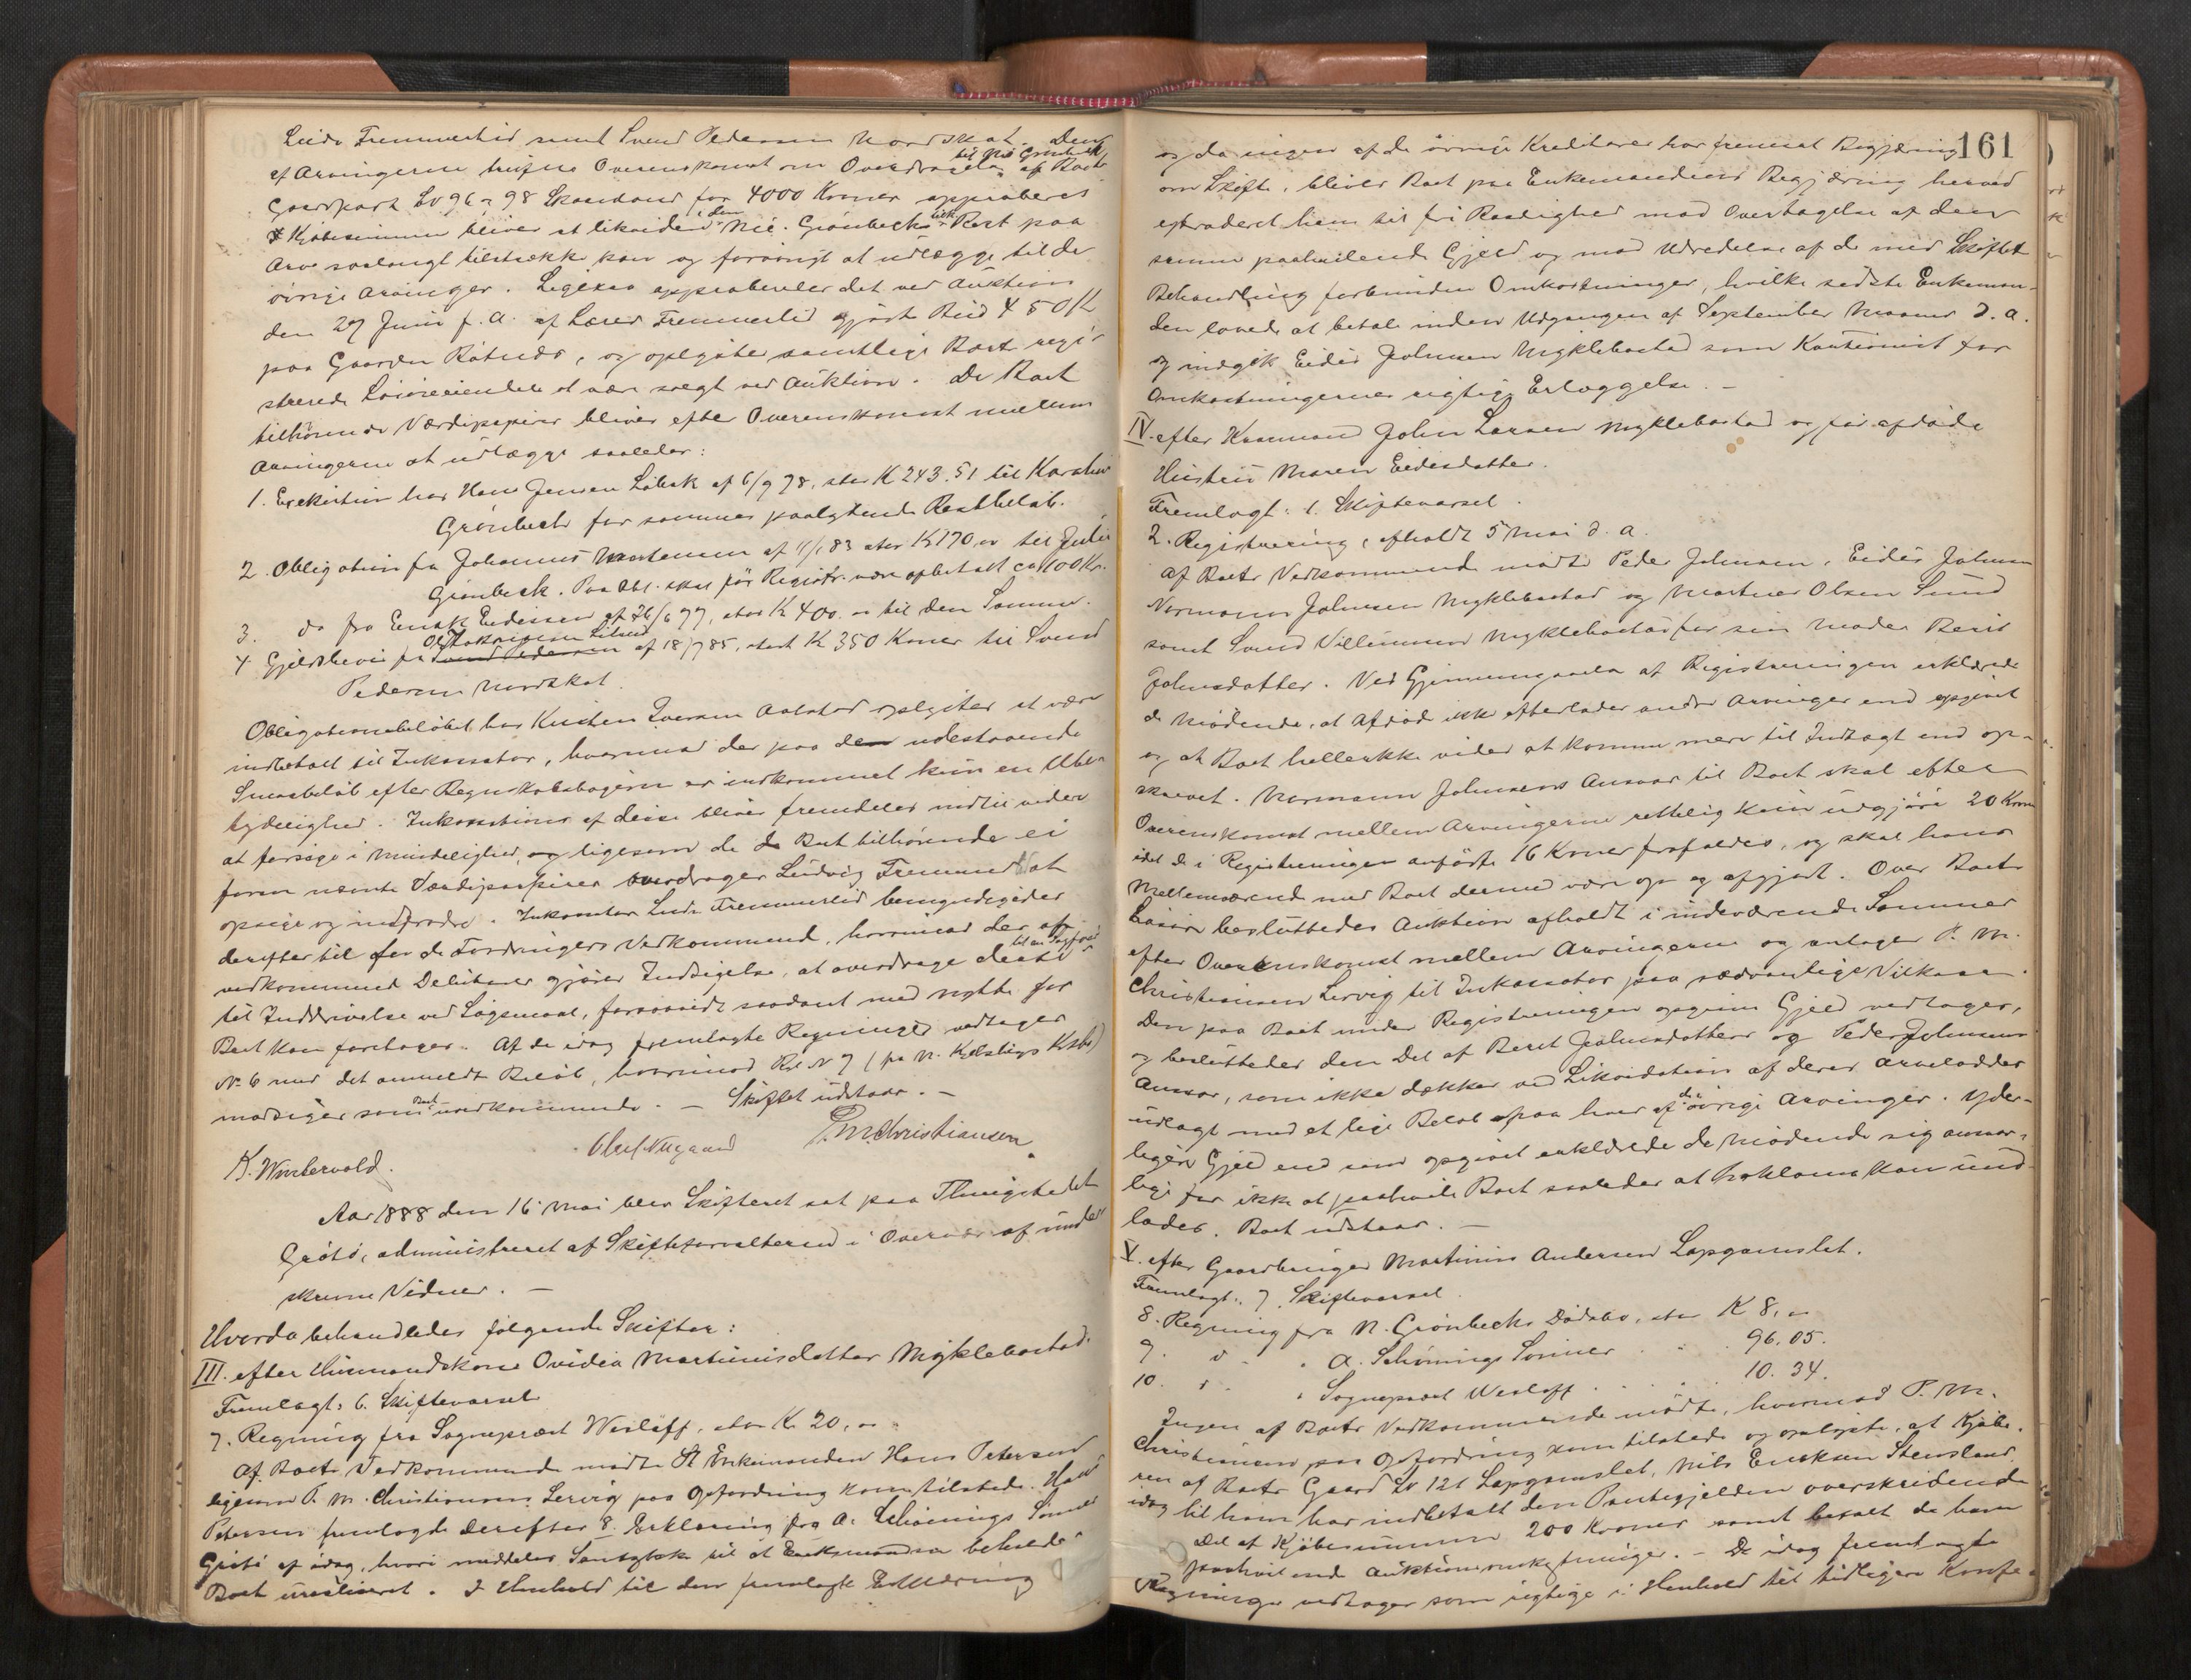 Ludv Fremmerlid samt Svend Pedersen Nordskat. Den
af Arvingerne trufne Overenskomst om Overdragelse til Nic Grønbeck af Boets
Gaardpart Lv 96 & 98 Skaanland for 4000 Kroner approberes
Kjøbesummen bliver at likvidere i den Nic. Grønbecks tilk. Boet paa
Arv saalangt tilstrække kan og forøvrigt at udlægge til de
øvrige Arvinger. Ligesaa approberedes det ved Auktion
den 27 Juni f. A. af Lærer Fremmerlid gjort Bud 450 K
paa Gaarden, og oplystes samtlige Boet regi-
strerede Løsøreiendele at være solgt ved Auktion. De Boet
tilhørende Værdipapirer bliver efter Overenskomst mellem
Arvingerne at udlægge saaledes:
1. Exekution hos Hans Jensen Løbak af 6/9 78, stor K 243.51 til Karoline
Grønbeck for sammes paalydende Restbeløb.
2. Obligation fra Johannes Mortensen af 11/1 83 stor K 170,00 til Julie
Grønbeck. Paa Obl. skal før Registr. være afbetalt ca 100 Kr.
3. do fra Enok Eedissen af 26/6 77, stor K 400.00 til den Samme.
4. Gjeldsbevis fra af 18/7 85, stort K 350 Kroner til Svend
Pedersen Nordskat.
Obligationsbeløbet hos Kristen Iversen Aalstad oplystes at være
indbetalt til Inkassator, hvorimod der paa de udestaaende
Smaabeløb efter Regnskabsbogen er indkommet kun en Ube-
tydelighed. Inkassation af disse bliver fremdeles indtil videre
at forsøge i Mindelighed, og ligesom de Boet tilhørende ei
foran nævnte Værdipapirer overdrages Ludvig Fremmerlid at
opsige og inddrive. Inkassator Ludv. Fremmerlid bemyndigedes
derefter til for de Fordringers Vedkommende, hvorimod der af
vedkommende Debitorer gjøres Indsigelse, at overdrage disse til en Sagfører
til Inddrivelse ved Søgsmaal, forsaavidt saadant med Nytte for
Boet kan foretages. Af de idag fremlagte Regninger vedtages
No 6 med det anmeldte Beløb, hvorimod Rol No 7 (fra N. Kjelstrups Kktbo)
modsiges som Boet uvedkommende. — Skiftet udstaar. —
K. Wintervold. Oluf Nygaard P. M. Christiansen
Aar 1888 den 16 Mai blev Skifteret sat paa Thingstedet
Grøtø, administreret af Skifteforvalteren i Overvær af under-
skrevne Vidner. —
Hvorda behandledes følgende Skifter:
III. efter Huusmandskone Ovidia Martinusdatter Myklebostad.
Fremlagt: 6. Skiftevarsel
7. Regning fra Sognepræst Wisløff, stor Kr. 20,00.
Af Boets Vedkommende mødte Enkemanden Hans Petersen
ligesom P. M. Christiansen Lervig paa Opfordring kom tilstede. Hans
Petersen fremlagde derefter 8. Erklæring fra A. Schønings Sønner
Grøtø af idag, hvori meddeles Samtykke til at Enkemanden beholder
Boet uskiftet. I Henhold til den fremlagte Erklæring
161
og da ingen af de øvrige Kreditorer har fremsat Begjæring
om Skifte, bliver Boet paa Enkemandens Begjæring herved
extraderet ham til fri Raadighed mod Overtagelse af den
samme paahvilende Gjeld og mod Udredelse af de med Skiftets
Behandling forbundne Omkostninger, hvilke sidste Enkeman-
den lovede at betale inden Udgangen af September Maaned d. A.
og indgik Eidis Johnsen Myklebostad som Kautionist for
Omkostningernes rigtige Erlæggelse. —
IV. efter Kaarmand John Larsen Myklebostad og før afdøde
Hustru Maren Eedesdatter.
Fremlagt: 1. Skiftevarsel.
2. Registrering, afholdt 5 Mai d. A.
Af Boets Vedkommende mødte Peder Johnsen, Eidis Johnsen
Normann Johnsen Myklebostad og Martines Olsen Sund
samt Svend Villumsen Myklebostad for sin Moder Berit
Johnsdatter. Ved Gjennemgaaelse af Registreringen erklærede
de Mødende, at Afdøde ikke efterlader andre Arvinger end opgivet
og at Boet hellerikke vides at komme mere til Indtægt end op-
skrevet. Normann Johnsens Ansvar til Boet skal efter
Overenskomst mellem Arvingerne rettelig kun udgjøre 20 Kroner
idet de i Registreringen anførte 16 Kroner frafaldes, og skal hans
Mellemværende med Boet dermed være op og afgjort. Over Boets
Løsøre besluttedes Auktion afholdt i indeværende Sommer
efter Overenskomst mellem Arvingerne og antages P. M.
Christiansen Lervig til Inkassator paa sædvanlige Vilkaar.
Den paa Boet under Registreringen opgivne Gjeld vedtages,
og besluttedes den Del af Beret Johnsdatters og Peder Johnsens
Ansvar, som ikke dækkes ved Likvidation af deres Arvelodder
udlagt med et lige Beløb paa hver af de øvrige Arvinger. Yder-
ligere Gjeld end som opgivet erklærede de Mødende sig ansvar-
lige for ikke at paahvile Boet saaledes at Proklama kan und-
lades. Boet udstaar. —
V. efter Gaardbruger Martinus Andersen Lapgamslet.
Fremlagt: 7. Skiftevarsel.
8. Regning fra N. Grønbecks Dødsbo, stor K 8,00
9. do. " A. Schønings Sønner " " 96.05.
10. do. " Sognepræst Wisløff. " " 10.34.
Ingen af Boets Vedkommende mødte, hvorimod P. M.
Christiansen paa Opfordring kom tilstede og oplyste, at Kjøbe-
ren af Boets Gaard Lv 121 Lapgamslet, Nils Eriksen Stensland
idag til ham har indbetalt den Pantegjelden overskridende
Del af Kjøbesummen 200 Kroner samt betalt de ham
paahvilende Auktionsomkostninger. — De idag fremlagte
Regninger vedtages som rigtige i Henhold til tidligere Konfe-